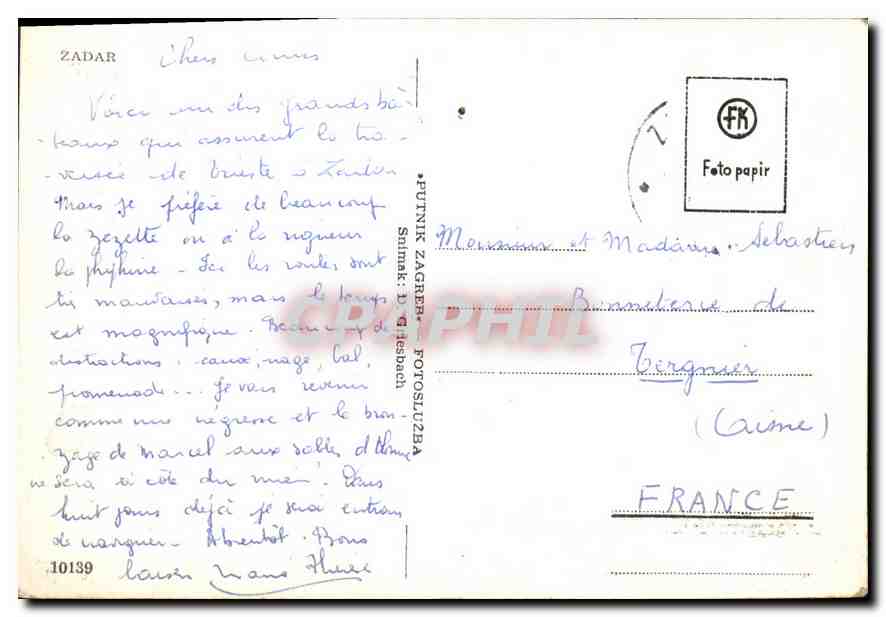 ZADAR
Chers amis
Voici un des grands ba-
-teaux qui assurent la tra-
-versée de Trieste à Zadar
Mais je préfère de beaucoup
la zezette ou à la rigueur
la - Ici les routes sont
très mauvaises, mais le temps
est magnifique. Beaucoup de
distractions. canoë, nage, bal,
promenade... Je vais revenir
comme une négresse et le bron-
zage de Marcel aux Sables d'Olonne
ne sera à côté du mien! Dans
huit jours déjà je serai en train
de naviguer - A bientôt. Bons
baisers Marie Thérèse
10139
•PUTNIK ZAGREB• — FOTOSLUŽBA
Snimak: D. Griesbach
CPAPHIL
FK
Foto papir
Monsieur et Madame Sebastien
Bonneterie de
Tergnier
(Aisne)
FRANCE